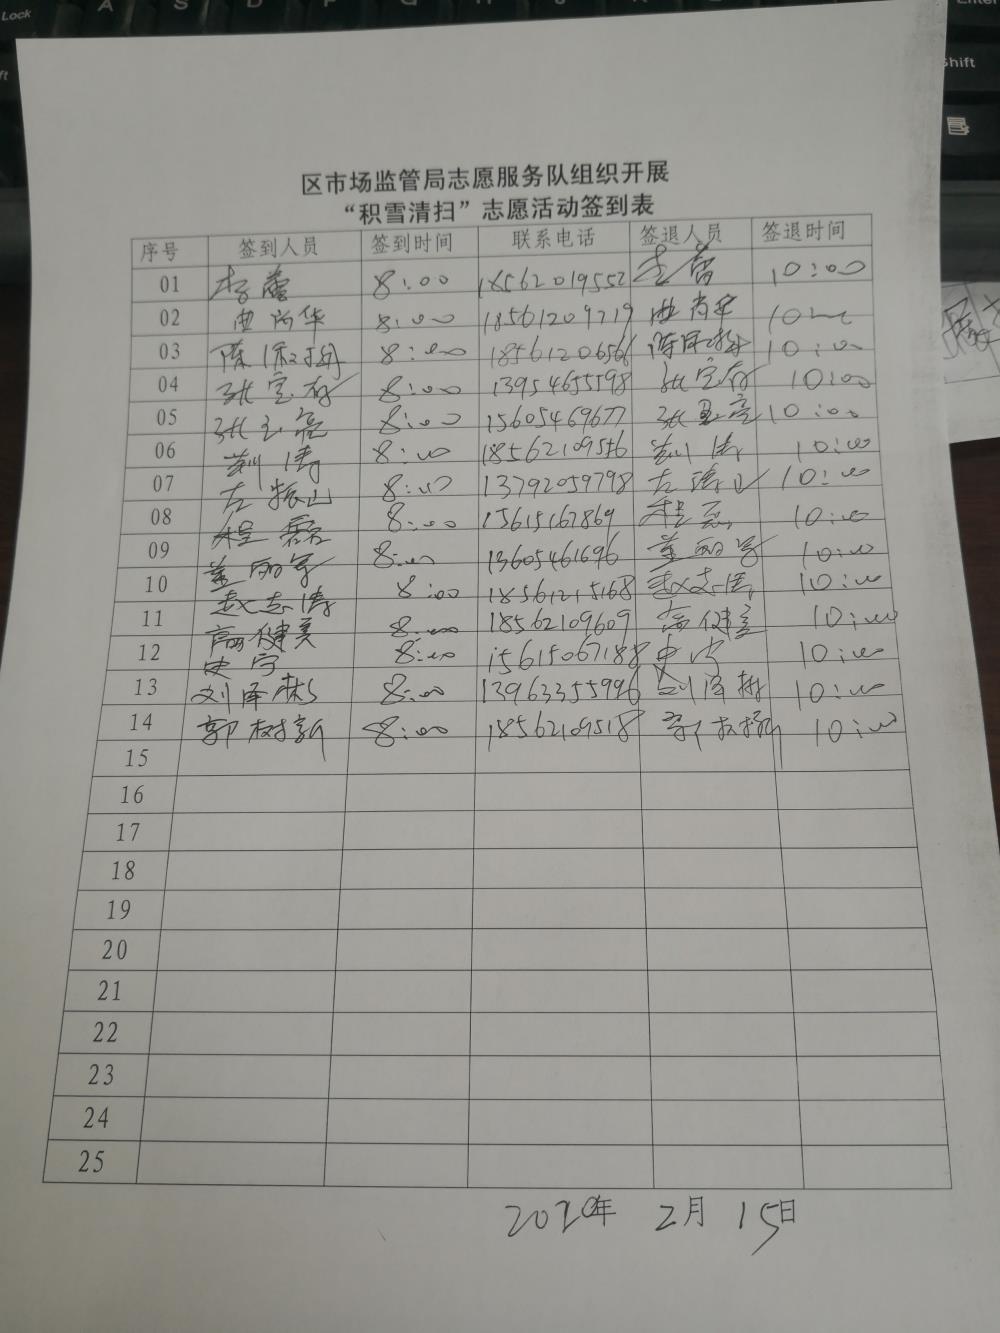 区市场监管局志愿服务队组织开展
“积雪清扫”志愿活动签到表
序号 签到人员 签到时间 联系电话 签退人员 签退时间
01 李蕾 8:00 18562019552 李蕾 10:00
02 曲尚华 8:00 18561209719 曲尚华 10:00
03 陈 8:00 1856120656 陈 10:00
04 张宝存 8:00 13954655598 张宝存 10:00
05 张玉亮 8:00 15605469677 张玉亮 10:00
06 刘涛 8:00 18562109556 刘涛 10:00
07 左振山 8:00 13792059798 左振山 10:00
08 程磊 8:00 15615167869 程磊 10:00
09 董丽军 8:00 13605461696 董丽军 10:00
10 赵志涛 8:00 18561215168 赵志涛 10:00
11 高健美 8:00 18562109609 高健美 10:00
12 史宁 8:00 15615067188 史宁 10:00
13 刘泽彬 8:00 13963355996 刘泽彬 10:00
14 郭树新 8:00 18562109518 郭树新 10:00
15
16
17
18
19
20
21
22
23
24
25
2020年 2月 15日